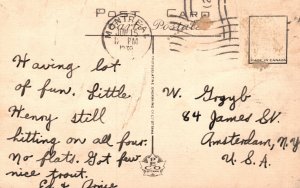 POST CARD
Carte Postale
MONTREAL
JUN 15
PM
MADE IN CANADA
Having lot
of fun. Little
Henry still
hitting on all four.
No flats. Got few
nice trout.
Ed &
W.
84 James St.
Amsterdam, N.Y
U.S.A